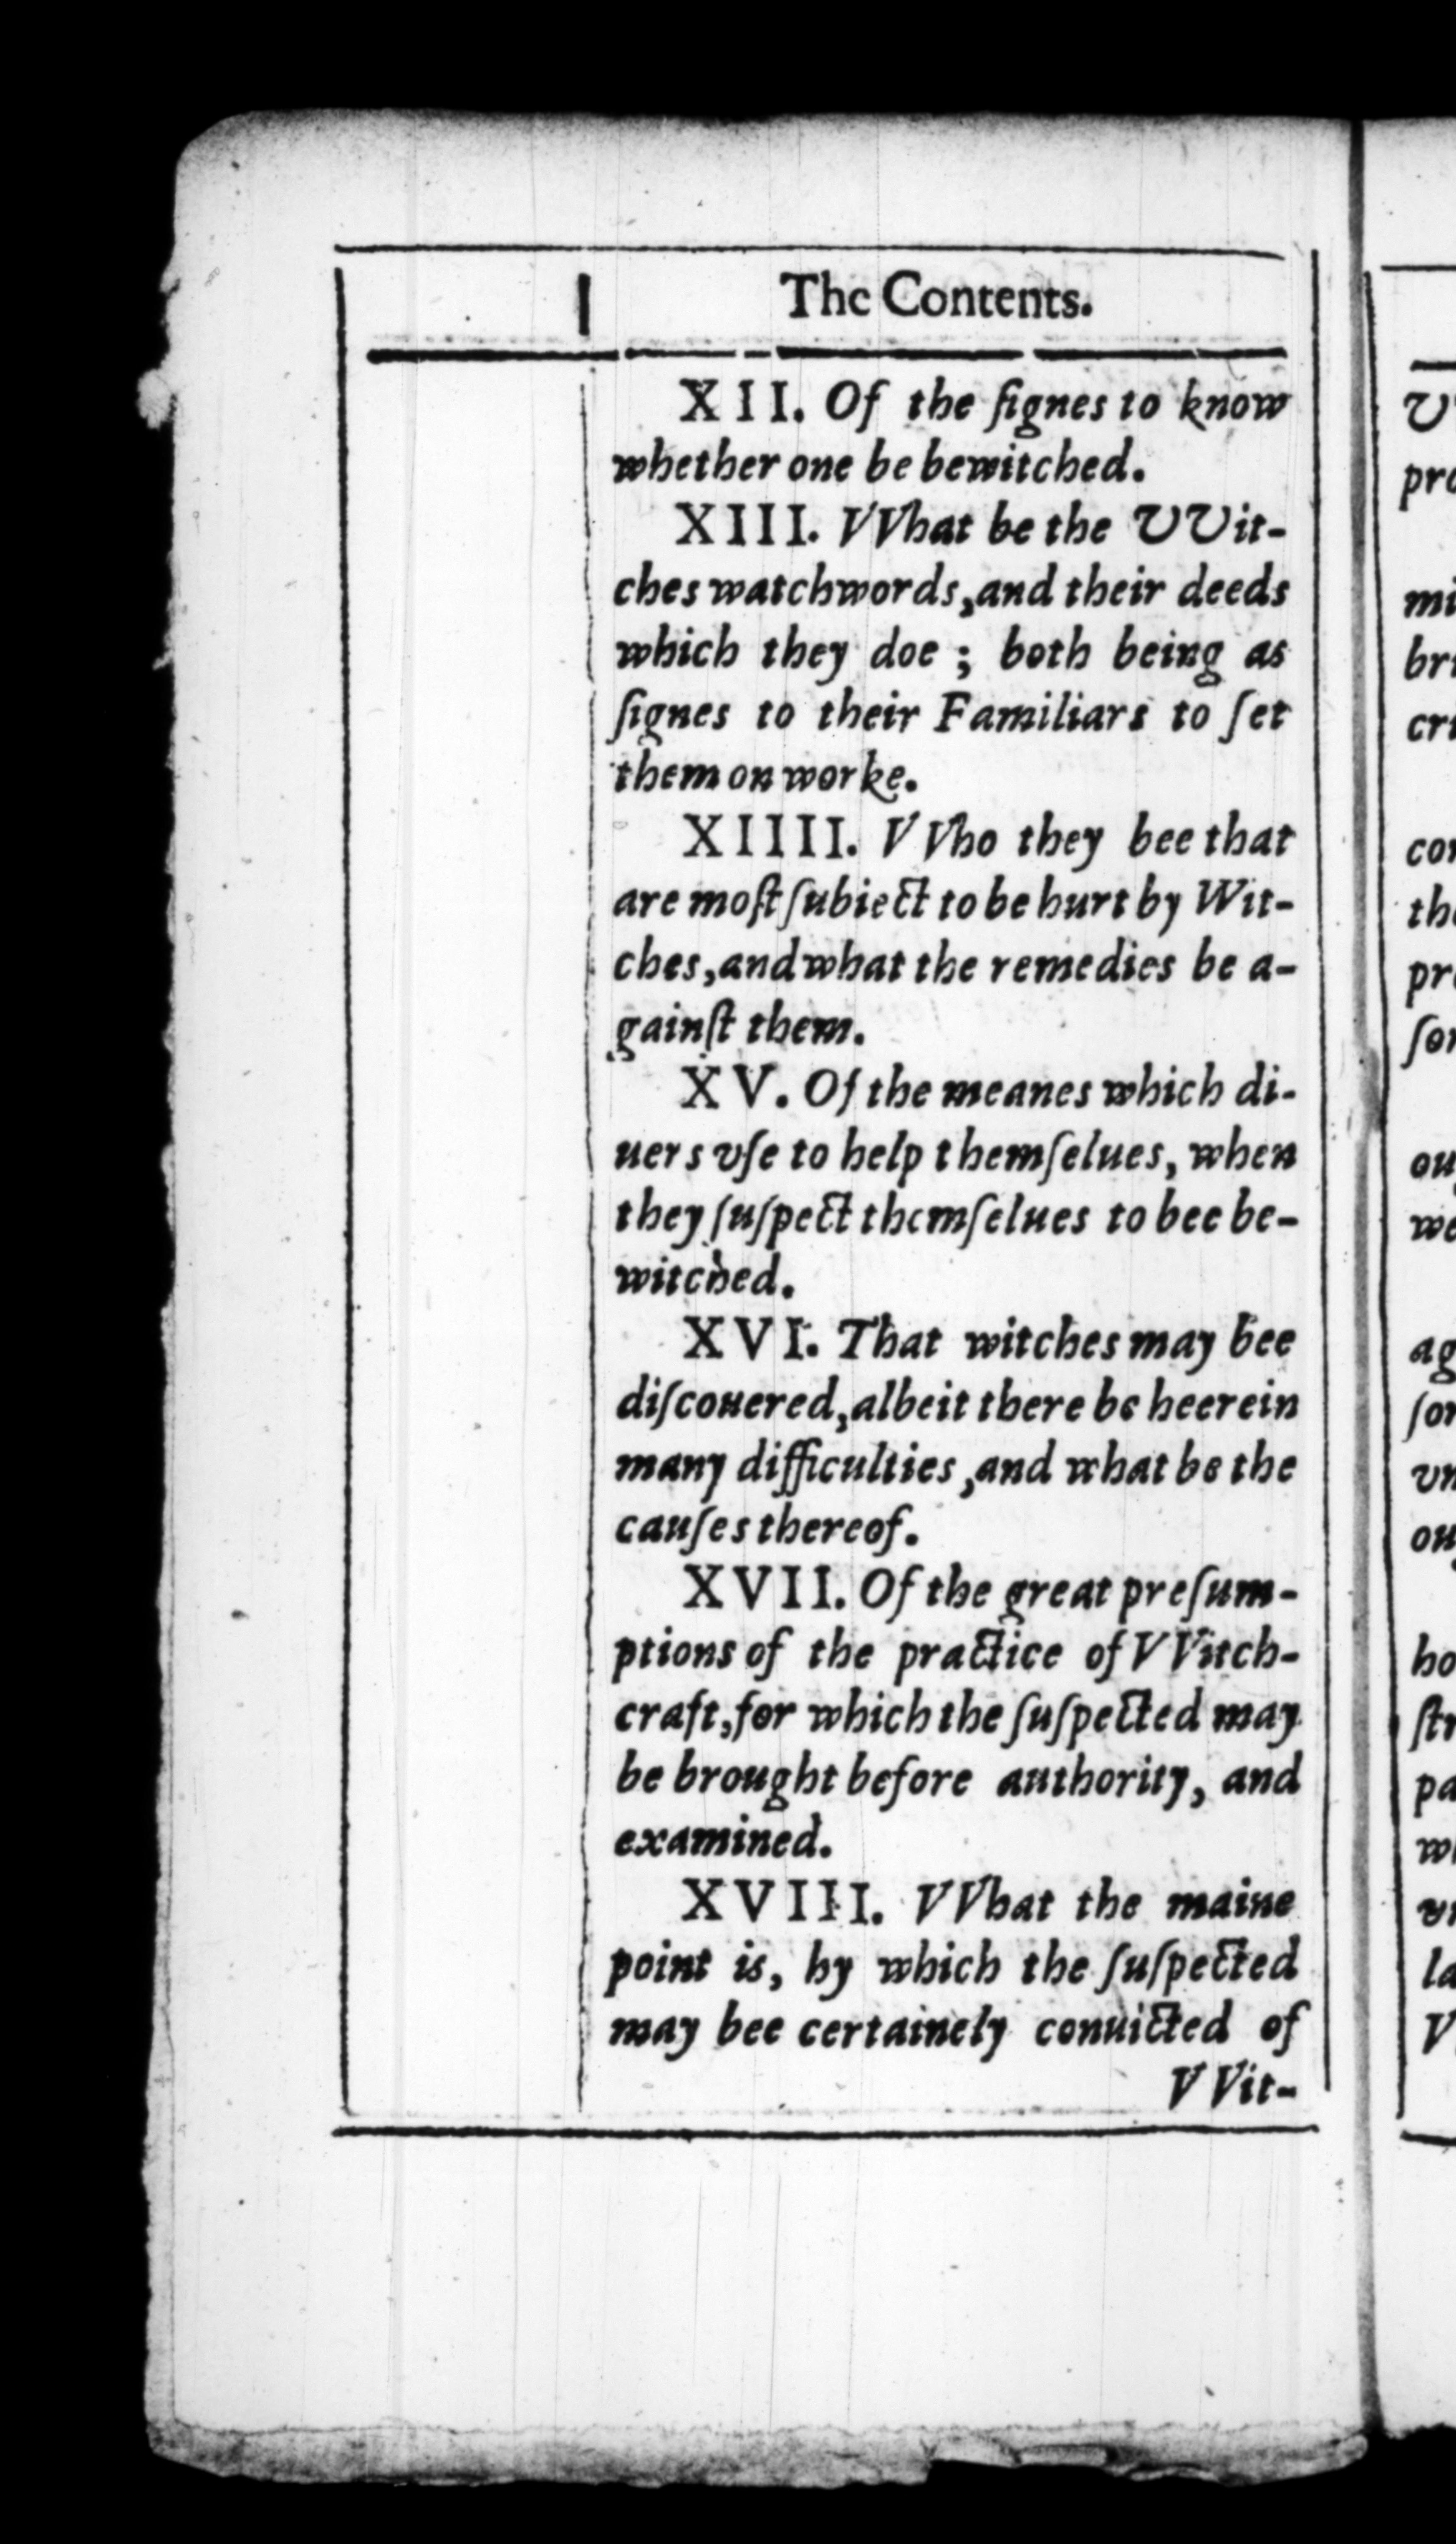 The Contents.
XII. Of the ſignes to know
whether one be bewitched.
XIII. VVhat be the VVit-
ches watchwords, and their deeds
which they doe ; both being as
ſignes to their Familiars to ſet
them on worke.
XIIII. VVho they bee that
are moſt ſubiect to be hurt by Wit-
ches, and what the remedies be a-
gainſt them.
XV. Of the meanes which di-
uers vſe to help themſelues, when
they ſuſpect themſelues to bee be-
witched.
XVI. That witches may bee
diſcouered, albeit there be heerein
many difficulties, and what be the
cauſes thereof.
XVII. Of the great preſum-
ptions of the practice of VVitch-
craft, for which the ſuſpected may
be brought before authority, and
examined.
XVIII. VVhat the maine
point is, by which the ſuſpected
may bee certainely conuicted of
VVit-